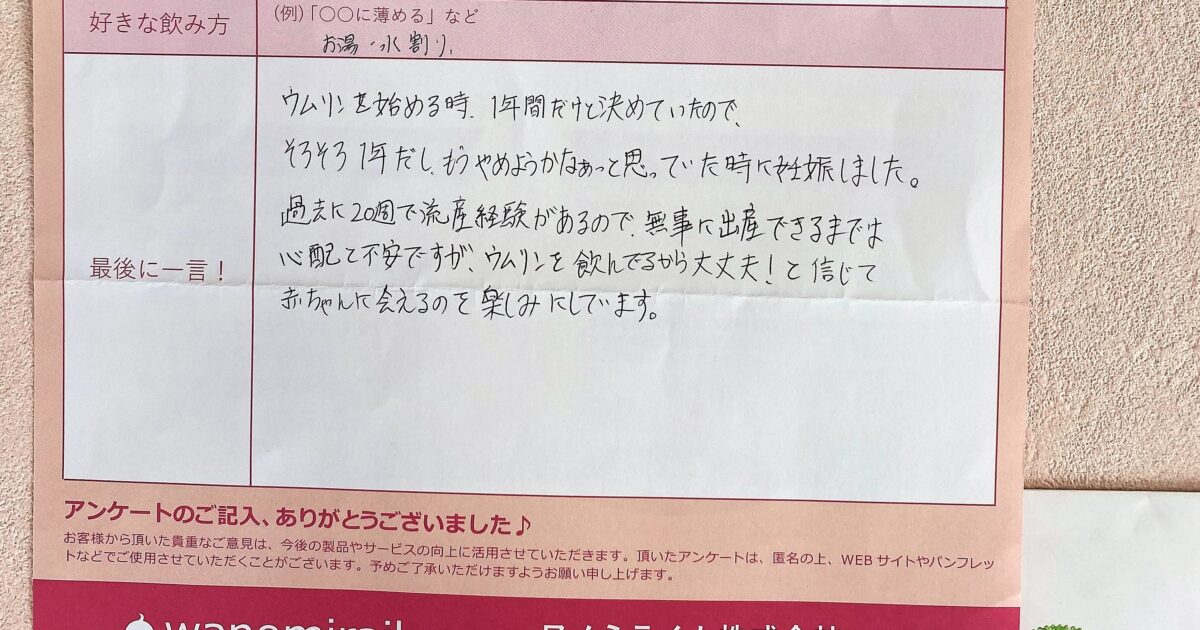 好きな飲み方
(例)「〇〇に薄める」など
お湯・水割り。
最後に一言！
ウムリンを始める時、1年間だけと決めていたので、
そろそろ1年だし、もうやめようかなぁっと思っていた時に妊娠しました。
過去に20週で流産経験があるので、無事に出産できるまでは
心配で不安ですが、ウムリンを飲んでるから大丈夫！と信じて
赤ちゃんに会えるのを楽しみにしています。
アンケートのご記入、ありがとうございました♪
お客様から頂いた貴重なご意見は、今後の製品やサービスの向上に活用させていただきます。頂いたアンケートは、匿名の上、WEBサイトやパンフレッ
トなどでご使用させていただくことがございます。予めご了承いただけますようお願い申し上げます。